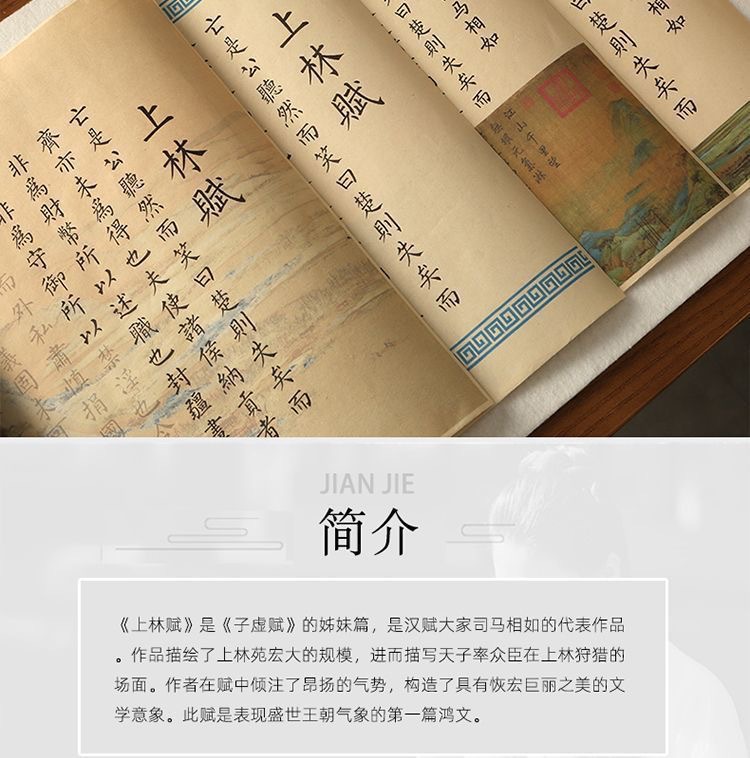 上林賦
亡是公聽然而笑曰楚則失矣而
齊亦未為得也夫使諸侯納貢者
非為財幣所以述職也封疆畫
非為守御所以禁淫也今
而外私肅慎捐國
義固未
上林賦
亡是公聽然而笑曰楚則失矣而
馬相如
曰楚則失矣而
江山千里望
無垠元氣淋
相如
楚則失矣而
JIAN JIE
简介
《上林赋》是《子虚赋》的姊妹篇，是汉赋大家司马相如的代表作品
。作品描绘了上林苑宏大的规模，进而描写天子率众臣在上林狩猎的
场面。作者在赋中倾注了昂扬的气势，构造了具有恢宏巨丽之美的文
学意象。此赋是表现盛世王朝气象的第一篇鸿文。